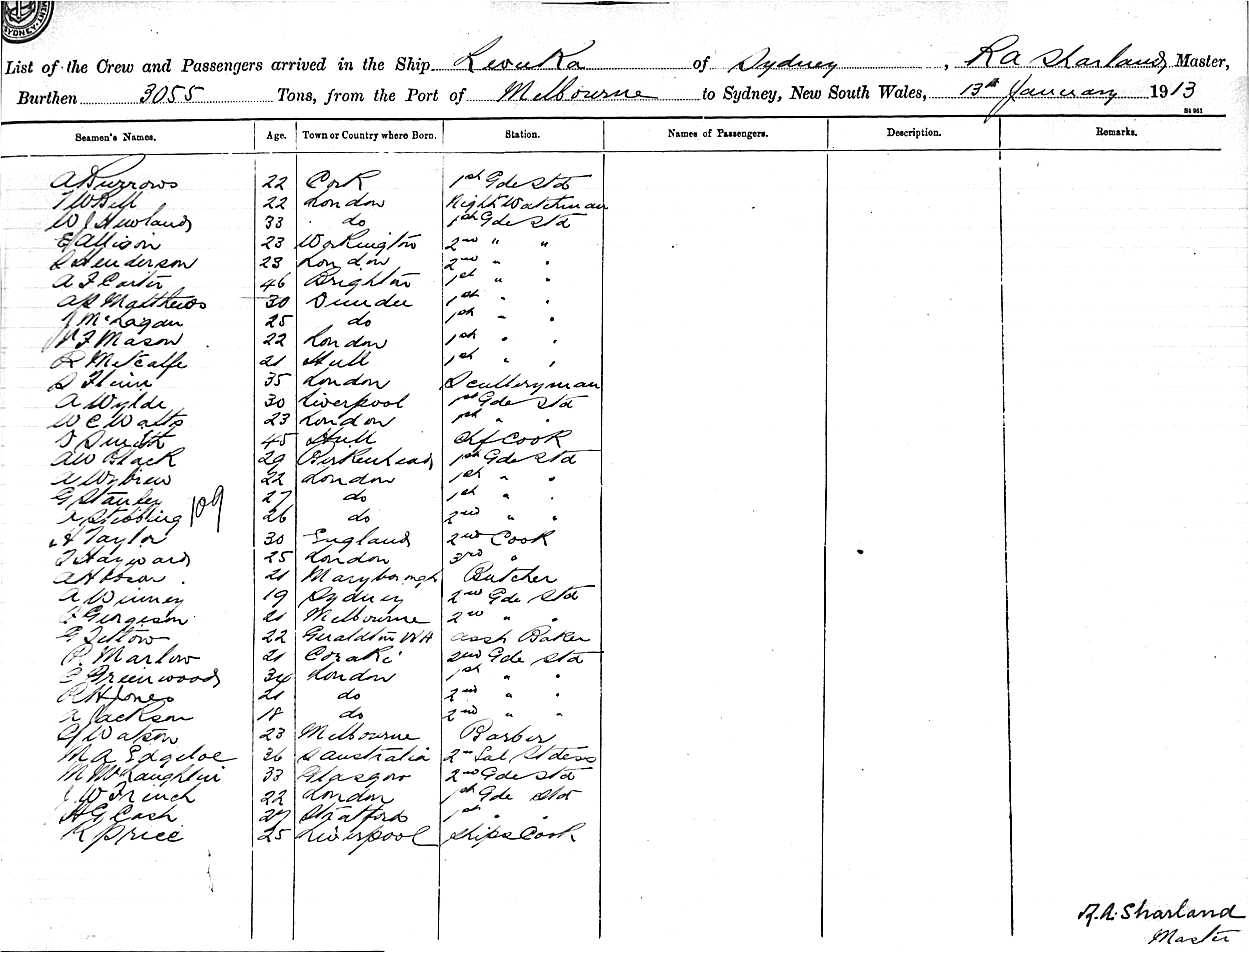 SYDNEY
List of the Crew and Passengers arrived in the Ship Levuka of Sydney, R A Sharland Master,
Burthen 3055 Tons, from the Port of Melbourne to Sydney, New South Wales, 13th January 1913
Seamen's Names. Age. Town or Country where Born. Station. Names of Passengers. Description. Remarks.
A Burrows 22 Cork 1st Gde Std
T W Bell 22 London Night Watchman
W J Newland 33 do 1st Gde Std
E Allison 23 Workington 2nd " "
S Henderson 23 London 2nd " "
A F Carter 46 Brighton 1st " "
A R Matthews 30 Dundee 1st " "
J McLagan 25 do 1st " "
F Mason 22 London 1st " "
R Metcalfe 21 Hull 1st " "
S 35 London Sculleryman
A Wylde 30 Liverpool 1st Gde Std
W C Watts 23 London 1st " "
S Smith 45 Hull Chf Cook
A W Black 29 Birkenhead 1st Gde Std
A 22 London 1st " "
G Stanley 27 do 1st " "
Stebbing 109 26 do 2nd " "
A Taylor 30 England 2nd Cook
T Hayward 25 London 3rd "
A 21 Maryborough Butcher
A Winney 19 Sydney 2nd Gde Std
21 Melbourne 2nd " "
G 22 Geraldton WA Asst Baker
P. Marlow 21 Coraki 2nd Gde Std
Greenwood 34 London 1st " "
R H Jones 21 do 2nd " "
A Jackson 18 do 2nd " "
Watson 23 Melbourne Barber
M A Edgeloe 36 S Australia 2nd Sal Stdess
M McLaughlin 33 Glasgow 2nd Gde Std
J W French 22 London 1st Gde Std
H G Cash 27 Stratford 1st " "
K Price 25 Liverpool Ships Cook
R. A. Sharland
Master